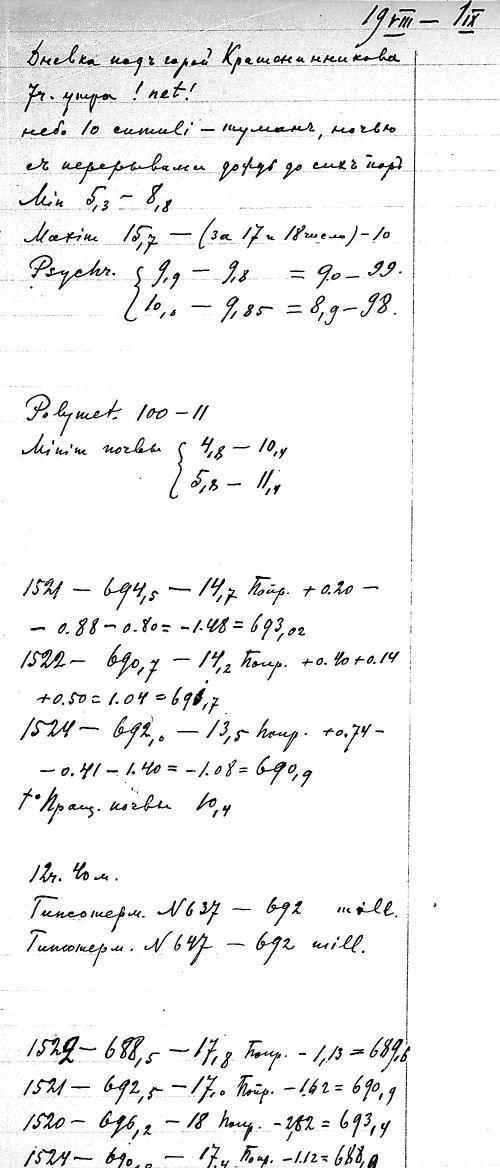 19 VIII — 1 IX
Дневка подъ горой Крашенинникова
7ч. утра ! net!
небо 10 cumuli — туманъ, ночью
съ перерывами дождь до сихъ поръ
Min 5,3 — 8,8
Maxim 15,7 — (за 17 и 18 число) — 10
Psychr. { 9,9 — 9,8 = 9,0 — 99.
10,0 — 9,85 = 8,9 — 98.
Polymet. 100 — 11
Minim почвы { 4,8 — 10,4
5,8 — 11,4
1521 — 694,5 — 14,7 Попр. +0.20 —
— 0.88 — 0.80 = -1.48 = 693,02
1522 — 690,7 — 14,2 Попр. +0.40 +0.14
+0.50 = 1.04 = 691,7
1524 — 692,0 — 13,5 Попр. +0.74 —
— 0.41 — 1.40 = -1.08 = 690,9
t° Пращ. почвы 10,4
12ч. 40м.
Гипсотерм. N 637 — 692 mill.
Гипсотерм. N 647 — 692 mill.
1522 — 688,5 — 17,8 Попр. - 1,13 = 689,6
1521 — 692,5 — 17,0 Попр. -1.62 = 690,9
1520 — 696,2 — 18 Попр. -2,82 = 693,4
1524 — 690 — 17,4 Попр. -1.12 = 688,9